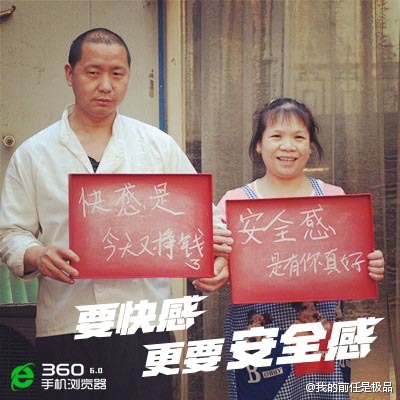 快感是
今天又挣钱了
安全感
是有你真好
要快感
更要安全感
360 6.0
手机浏览器
BOBBY
@我的前任是极品